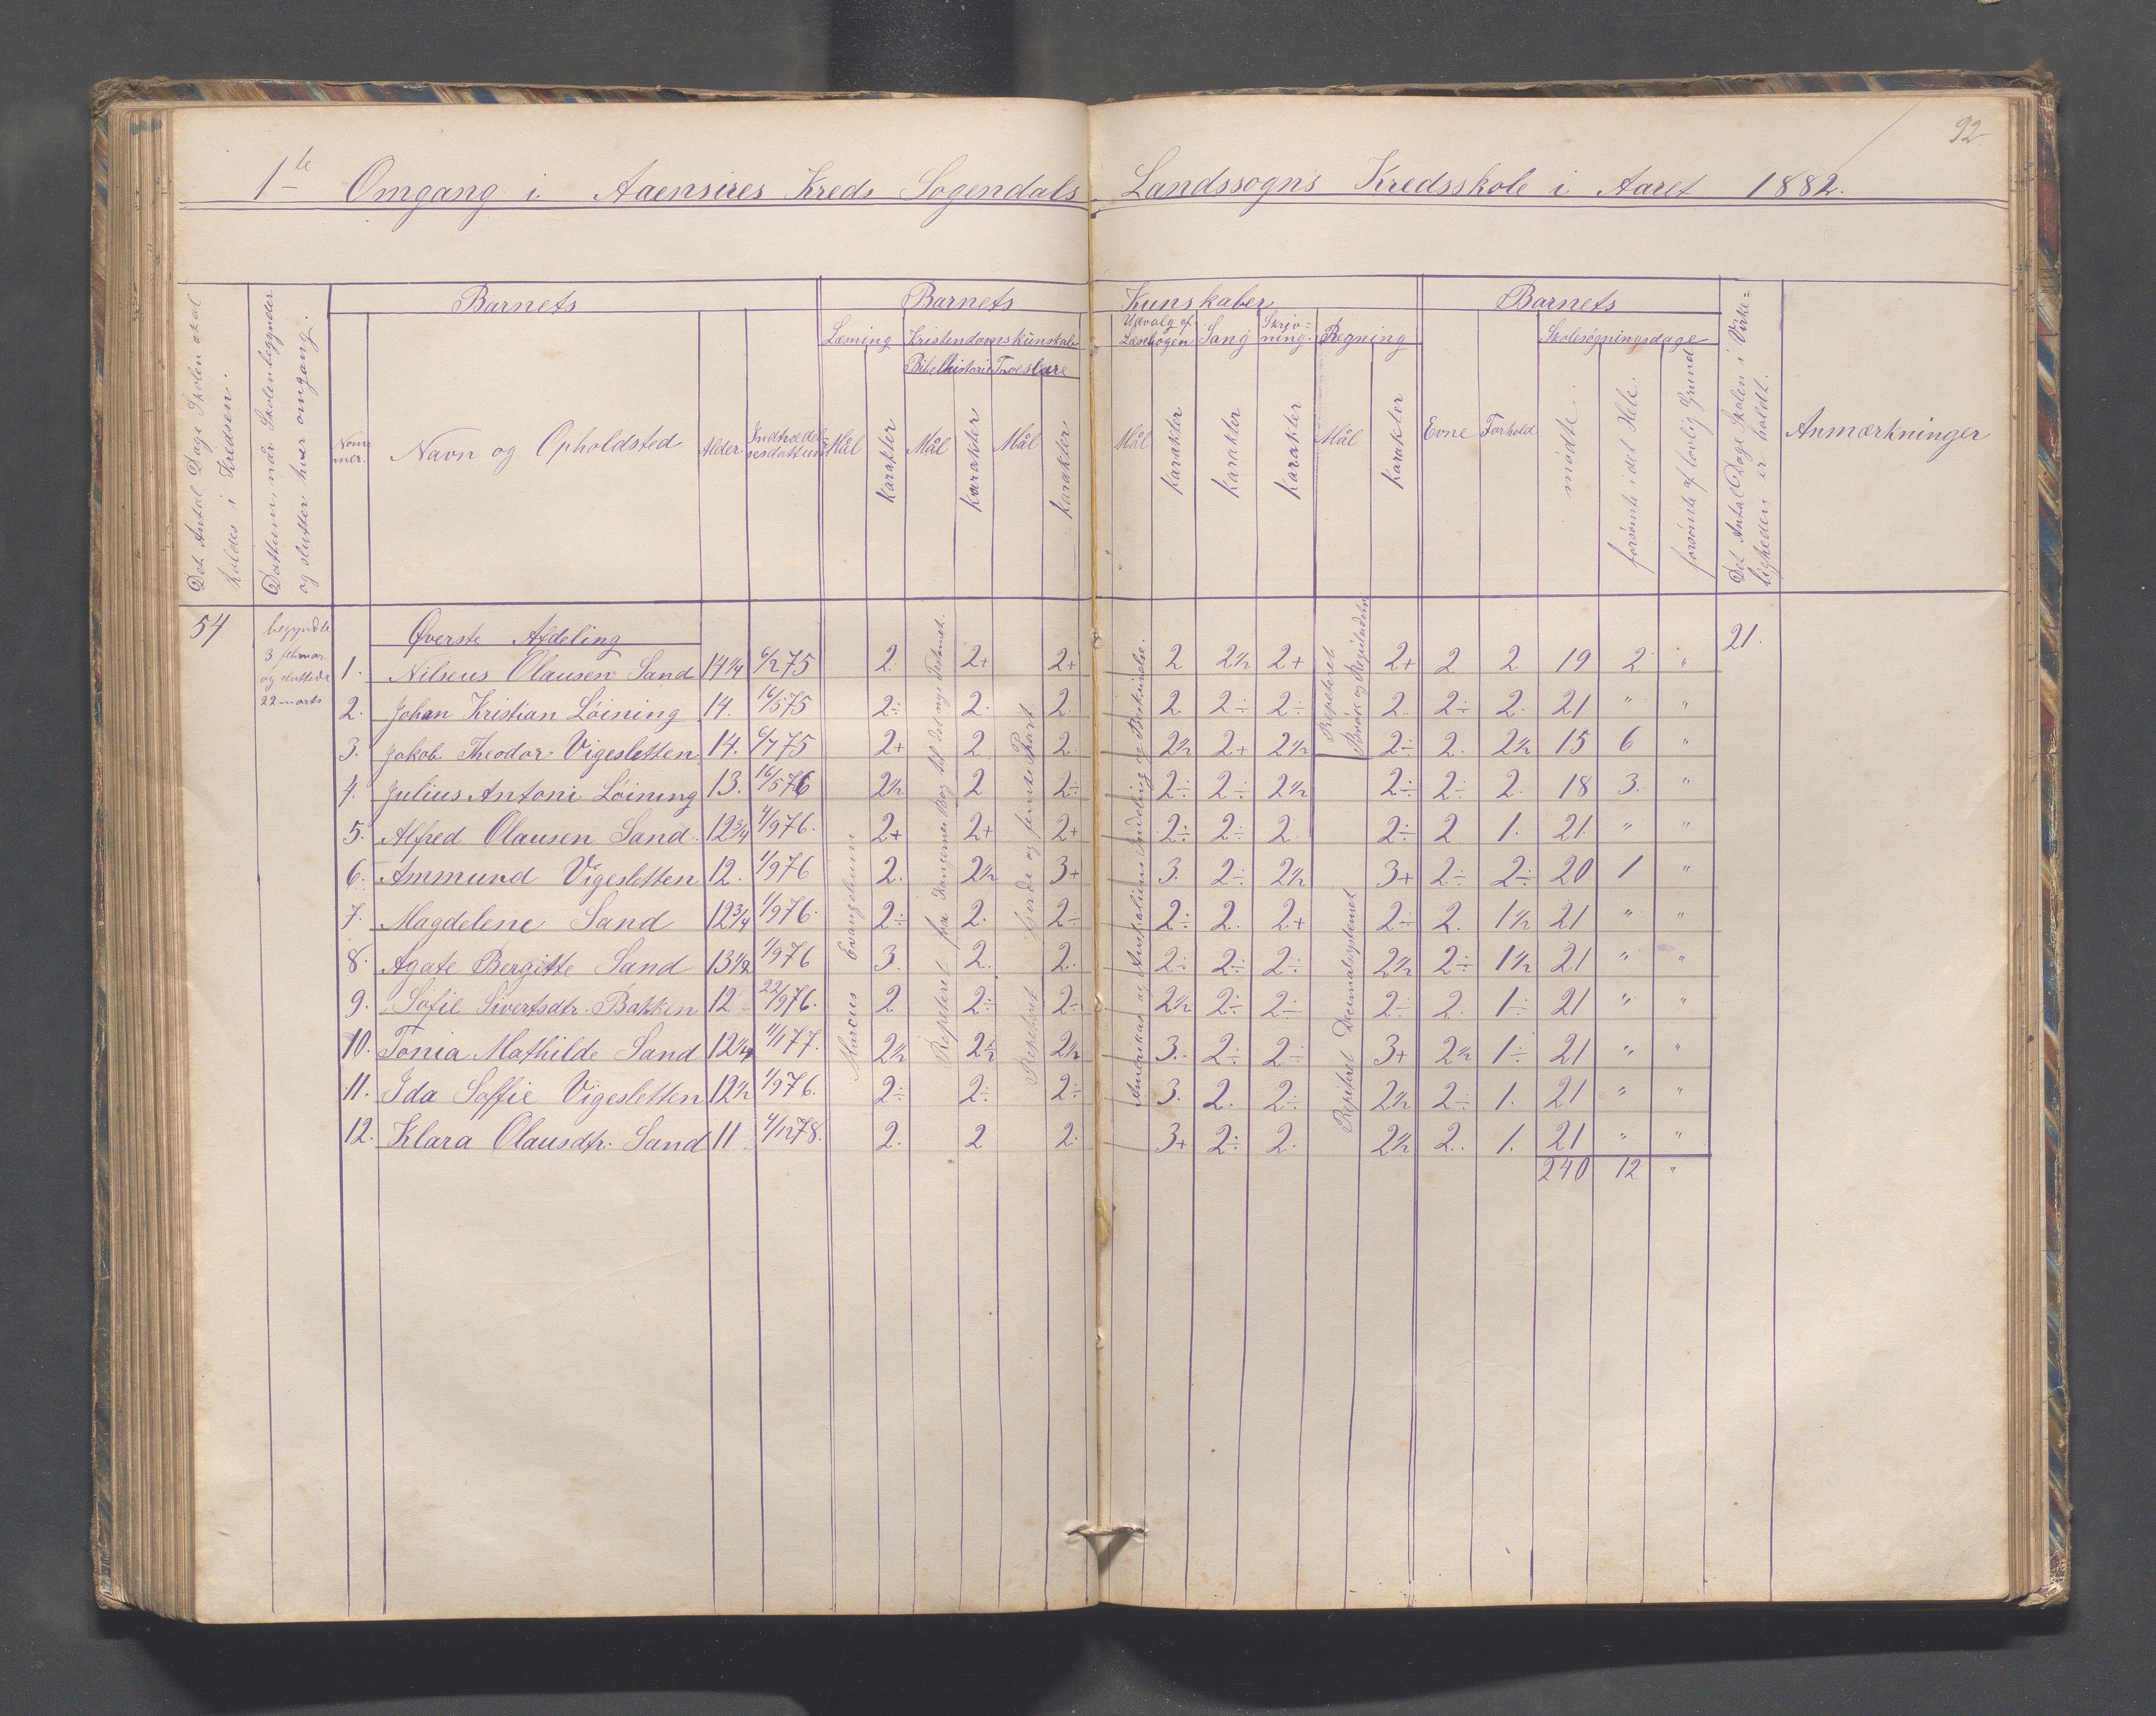 92
1ste Omgang i Aaensires Kreds Sogendals Landssogns Kredsskole i Aaret 1882.
Det Antal Dage Skolen skal holdes i Kredsen.
Dattum, når Skolen begynder og slutter hver omgang.
Barnets
Barnets Kunskaber
Barnets
Det Antal Dage Skolen i Virke=ligheden er holdt.
Anmærkninger
Nom=mer.
Navn og Opholdsted
Alder
Indtrædel=sesdattum
Læsning
Kristendomskunskab
Udvalg af Læsebogen
Sang
Skriv=ning.
Regning
Evne
Forhold
Skolesøgningsdage
Bibelhistorie
Troeslære
Mål karakter Mål karakter Mål karakter Mål karakter karakter karakter Mål karakter
mødte
forsømte i det Hele.
forsømte af lovlig Grund
54
begyndte
3 februar
og sluttede
22 marts
Øverste Afdeling
21.
1. Nilseus Olausen Sand 14 1/4 6/2 75 2 2+ 2+ 2 2 1/2 2+ 2+ 2 2 19 2 "
2. Johan Kristian Löining 14. 16/5 75 2÷ 2. 2. 2 2÷ 2÷ 2. 2÷ 2. 21 " "
3. Jakob Theodor Vigesletten 14. 6/7 75 2+ 2 2. 2 1/2 2+ 2 1/2 2÷ 2. 2 1/2 15 6 "
4. Julius Antoni Löining 13. 16/5 76 2 1/2 2 2÷ 2÷ 2÷ 2 1/2 2÷ 2÷ 2. 18 3. "
5. Alfred Olausen Sand 12 3/4 1/9 76. 2+ 2+ 2+ 2÷ 2÷ 2. 2÷ 2 1. 21. " "
6. Ammund Vigesletten 12. 1/9 76 2. 2 1/2 3+ 3. 2÷ 2 1/2 3+ 2÷ 2÷ 20 1 "
7. Magdelene Sand 12 3/4 1/9 76. 2÷ 2. 2÷ 2÷ 2. 2+ 2÷ 2. 1 1/2 21 " "
8. Agate Bergitte Sand 13 1/2 1/9 76 3. 2. 2. 2÷ 2÷ 2÷ 2 1/2 2÷ 1 1/2 21 " "
9. Sofie Sivertsdtr. Bakken 12 22/9 76. 2 2÷ 2÷ 2 1/2 2÷ 2÷ 2÷ 2. 1÷ 21 " "
10. Tonia Mathilde Sand 12 1/4 1/1 77. 2 1/2 2 1/2 2 1/2 3. 2÷ 2÷ 3+ 2 1/2 1÷ 21 " "
11. Ida Soffie Vigesletten 12 1/2 1/9 76. 2÷ 2÷ 2÷ 3. 2. 2÷ 2 1/2 2÷ 1. 21 " "
12. Klara Olausdtr. Sand 11 4/12 78. 2. 2 2. 3+ 2÷ 2. 2 1/2 2. 1. 21 " "
240 12 "
Marcus Evangelium
Repeteret fra Kongernes Bog til det nye Testamet.
Repeteret fjerde og femte Part
Amerikas og Australiens Indeling og Beskrivelse.
Repeteret Brøk og Regeladetri
Repeteret Decimalsystemet